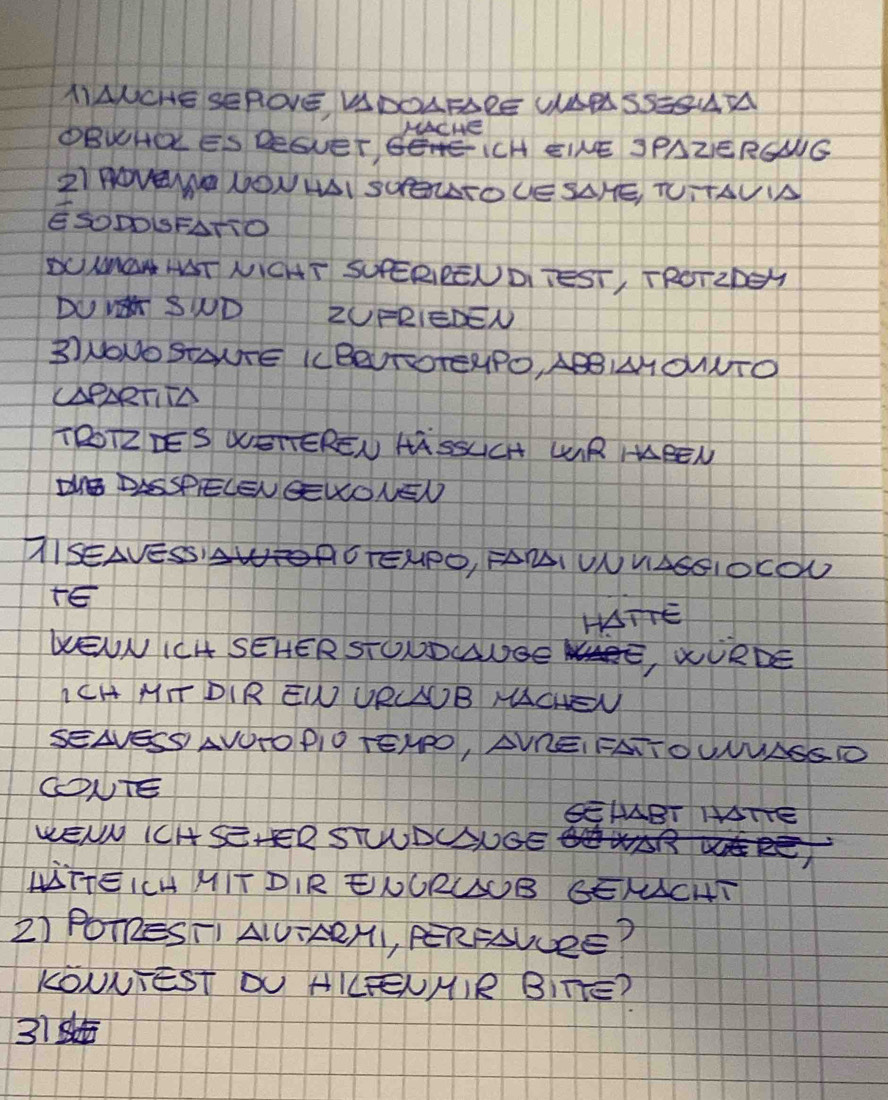 1) ANCHE SE PIOVE, VADO A FARE UNA PASSEGIATA
MACHE
OBWHOL ES REGNET, GEHE ICH EINE SPAZIERGANG
2) NON HAI SUPERATO L'ESAME, TUTTAVIA
È SODDISFATTO
DU HAT NICHT SUPERIREN DI TEST, TROTZDEM
DU SIND ZUFRIEDEN
3) NONOSTANTE IL BRUTTO TEMPO, ABBIAMO VINTO
LA PARTITA
TROTZ DES WETTEREN HÄSSLICH WIR HABEN
DAS SPIELEN GEWONEN
1) SE AVESSI PIÙ TEMPO, FARAI UN VIAGGIO CON
TE
HATTE
WENN ICH SEHER STUNDLANGE, WÜRDE
ICH MIT DIR EIN URLAUB MACHEN
SE AVESSI AVUTO PIÙ TEMPO, AVREI FATTO UN VIAGGIO
CON TE
GEHABT HATTE
WENN ICH SEHER STUNDLANGE GE WAR WÄRE,
HÄTTE ICH MIT DIR EIN URLAUB GEMACHT
2) POTRESTI AIUTARMI, PER FAVORE?
KÖNNTEST DU HILFEN MIR BITTE?
3)